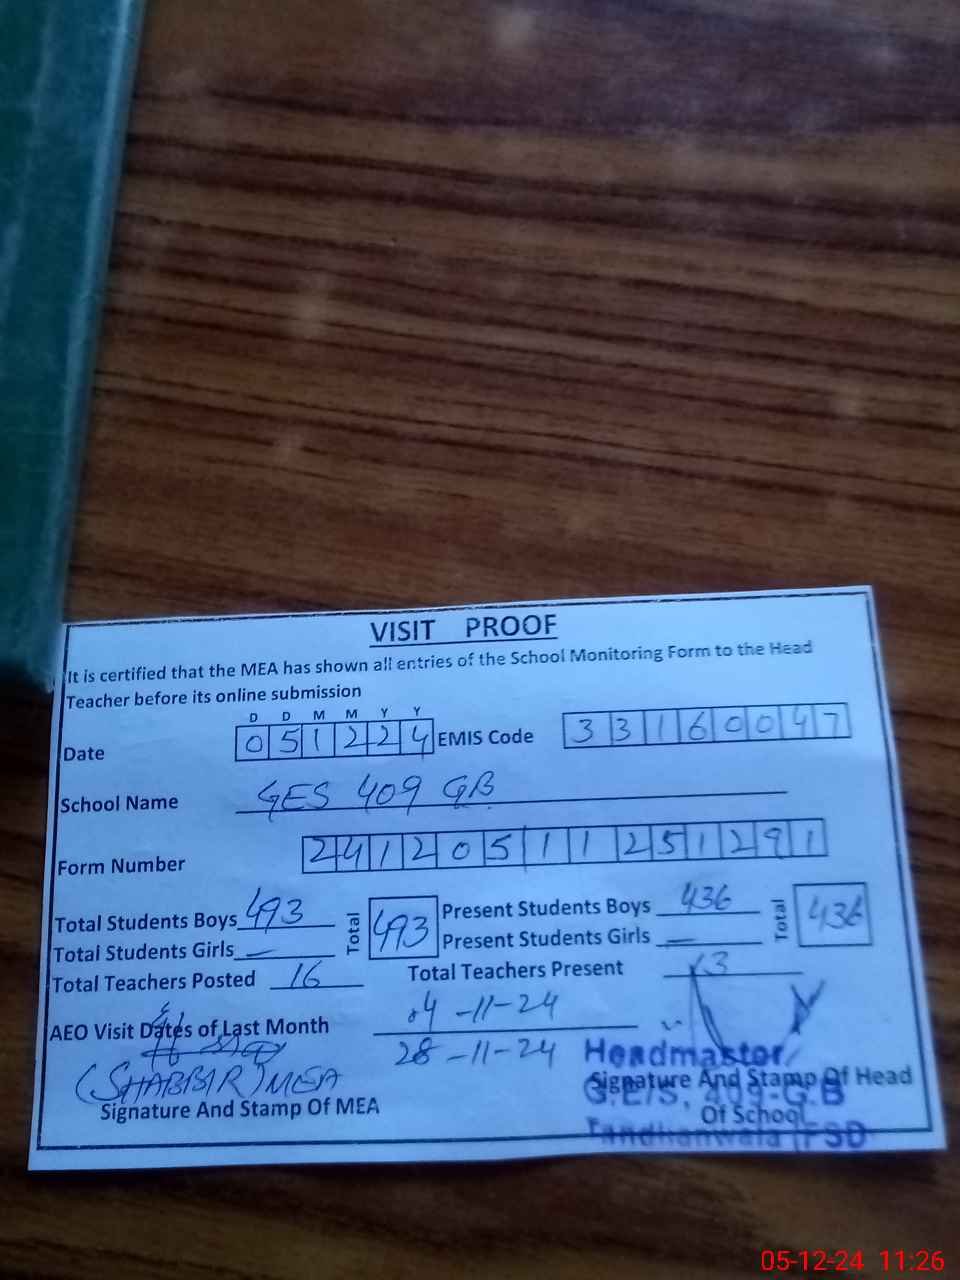 VISIT PROOF
It is certified that the MEA has shown all entries of the School Monitoring Form to the Head
Teacher before its online submission
D D M M Y Y
Date 051224 EMIS Code 33160047
School Name GES 409 GB
Form Number 24120511251291
Total Students Boys 493 Total 493 Present Students Boys 436 Total 436
Total Students Girls — Present Students Girls —
Total Teachers Posted 16 Total Teachers Present 13
AEO Visit Dates of Last Month 04-11-24
28-11-24
(SHABBIR) MEA
Signature And Stamp Of MEA
Headmaster
Signature And Stamp Of Head
G.E/S. 409-G.B
Of School
Tandlianwala FSD
05-12-24 11:26